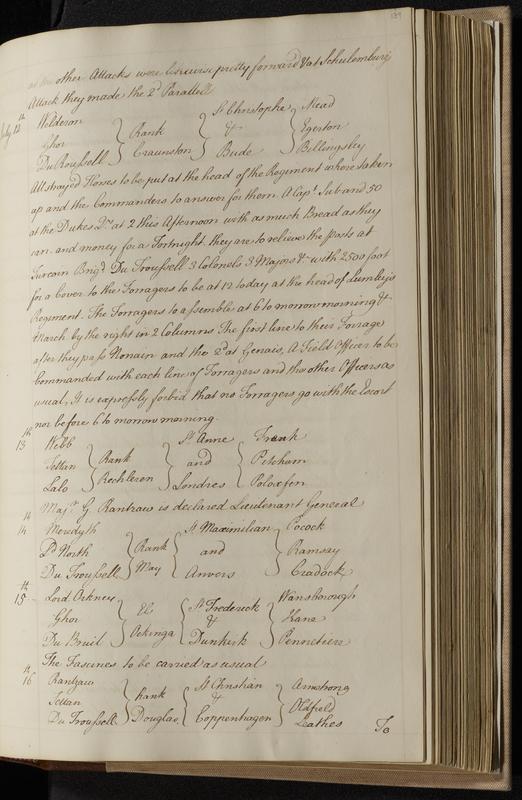 189
other Attacks were likewise pretty forward & at Schulemburg's
Attack they made the 2d Parallell
July 12th Welderon } Rank { St Christophe { Mead
Ghor } & { Egerton
Du Troussell } Craunston { Bude { Billingsley
All strayed Horses to be put at the head of the Regiment where taken
up and the Commanders to answer for them. A Capt Sub and 50
at the Dukes Qrs at 2 this Afternoon with as much Bread as they
can and money for a Fortnight. they are to relieve the Posts at
Turcoin Brigd Du Troussell 3 Colonels 3 Majors &c with 2500 foot
for a Cover to the Forragers to be at 12 to day at the head of Lumley's
Regiment. The Forragers to assemble at 6 to morrow morning &
March by the right in 2 Columns The first line to their Forrage
after they pass Nonain and the 2d at Genais, A Field Officer to be
Commanded with each line of Forragers and the other Officers as
usual, It is expressly forbid that no Forragers go with the Escort
nor before 6 to morrow morning.
13th Webb } Rank { St Anne { Frank
Tettan } and { Petcham
Lalo } Rechteren { Londres { Poloxfen
Majr G Rantzaw is declared Lieutenant General
14th Meredyth } Rank { St Maximilian { Pocock
Ld North } and { Ramsay
Du Troussell } May { Anvers { Cradock
15th Lord Orkney } El { St Frederick { Wansborough
Ghor } & { Kane
Du Bruil } Ockinga { Dunkirk { Pennetier
The Fascines to be carried as usual
16th Rantzaw } Rank { St Christian { Armstrong
Tettan } & { Oldfield
Du Troussell } Douglas { Coppenhagen { Leathes
To